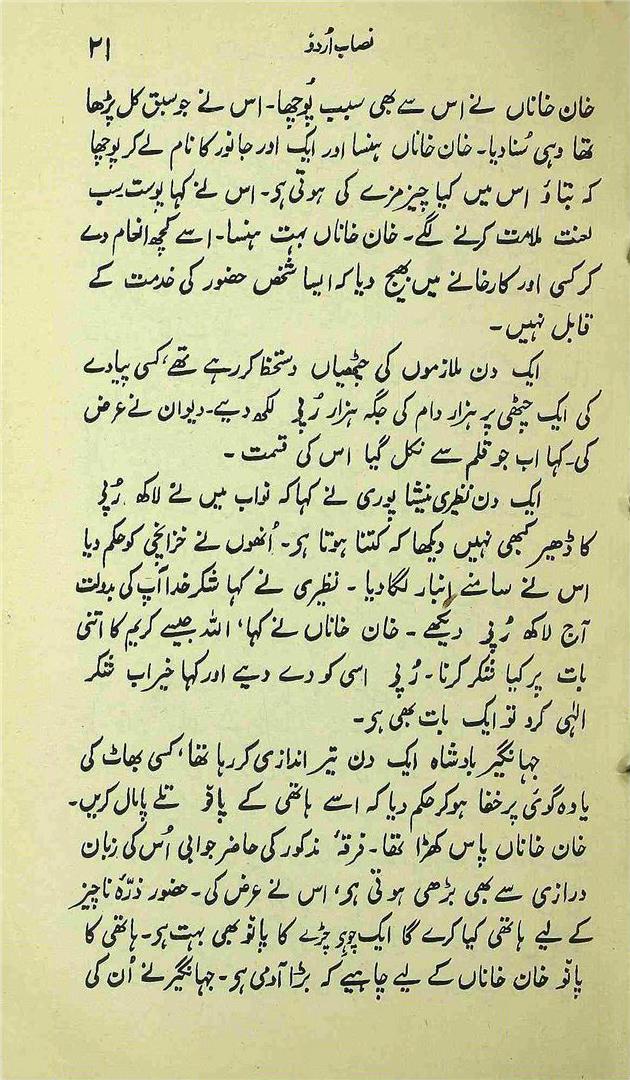 نصاب اُردو
۲۱
خان خاناں نے اس سے بھی سبب پُوچھا۔ اس نے جو سبق کل پڑھا
تھا وہی سُنا دیا۔ خان خاناں ہنسا اور ایک اور جانور کا نام لے کر پوچھا
کہ بتاؤ اس میں کیا چیز مزے کی ہوتی ہی۔ اس نے کہا پوست سب
لعنت ملامت کرنے لگے۔ خان خاناں بہت ہنسا۔ اسے کچھ انعام دے
کر کسی اور کارخانے میں بھیج دیا کہ ایسا شخص حضور کی خدمت کے
قابل نہیں۔
ایک دن ملازموں کی چٹھیاں دستخط کر رہے تھے، کسی پیادے
کی ایک چٹھی پر ہزار دام کی جگہ ہزار رُپی لکھ دیے۔ دیوان نے عرض
کی۔ کہا اب جو قلم سے نکل گیا اس کی قسمت ۔
ایک دن نظیری نیشا پوری نے کہا کہ نواب میں نے لاکھ رُپی
کا ڈھیر کبھی نہیں دیکھا کہ کتنا ہوتا ہی۔ اُنھوں نے خزانچی کو حکم دیا
اس نے سامنے انبار لگا دیا ۔ نظیری نے کہا شکر خدا آپ کی بدولت
آج لاکھ رُپی دیکھے ۔ خان خاناں نے کہا، اللہ جیسے کریم کا اتنی
بات پر کیا شکر کرنا۔ رُپی اسی کو دے دیے اور کہا خیر اب شکر
الٰہی کرو تو ایک بات بھی ہی۔
جہانگیر بادشاہ ایک دن تیر اندازی کر رہا تھا، کسی بھاٹ کی
یاوہ گوئی پر خفا ہو کر حکم دیا کہ اسے ہاتھی کے پانو تلے پامال کریں۔
خان خاناں پاس کھڑا تھا۔ فرقۂ مذکور کی حاضر جوابی اُس کی زبان
درازی سے بھی بڑھی ہوتی ہی، اس نے عرض کی۔ حضور ذرّہ ناچیز
کے لیے ہاتھی کیا کرے گا ایک چوہی چڑے کا پانو بھی بہت ہی۔ ہاتھی کا
پانو خان خاناں کے لیے چاہیے کہ بڑا آدمی ہی۔ جہانگیر نے اُن کی